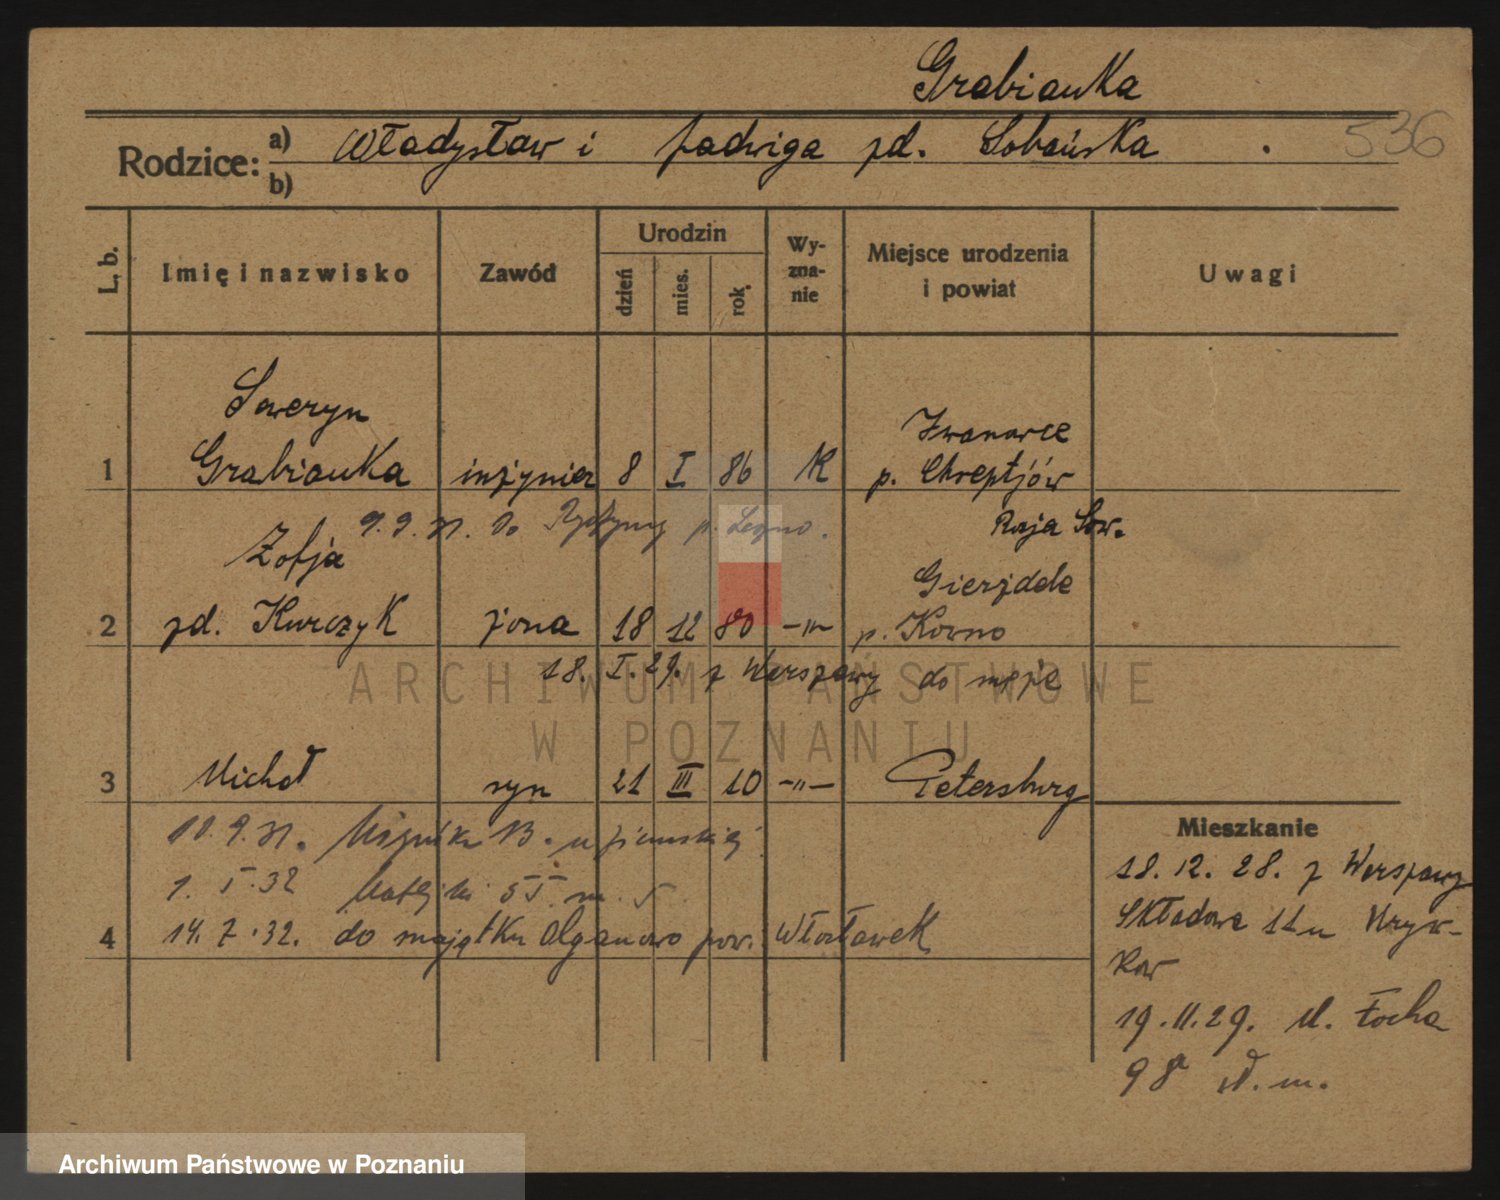 Grabianka
536
Rodzice: a) Władysław i Jadwiga zd. Sobańska .
b)
L. b. Imię i nazwisko Zawód Urodzin dzień mies. rok Wy-zna-nie Miejsce urodzenia i powiat Uwagi
Seweryn
Iwanowce
1 Grabianka inżynier 8 I 86 K p. Chreptjów
9.9.31. Do Rydzyny p. Leszno. Rosja Sow.
Zofja
Gierzdele
2 zd. Kurczyk żona 18 12 80 -"- p. Kowno
18. I. 29. z Warszawy do męża
ARCHIWUM PAŃSTWOWE
W POZNANIU
3 Michał syn 21 III 10 -"- Petersburg
Mieszkanie
10.9.31. 13. u
18. 12. 28. z Warszawy
1. I. 32 Matejki 55 m. 5
Składowa 11 u Kryw-
4 14. 7. 32. do majątku Olganowo pow. Włocławek
kow
19. II. 29. M. Focha
98 d. m.
Archiwum Państwowe w Poznaniu